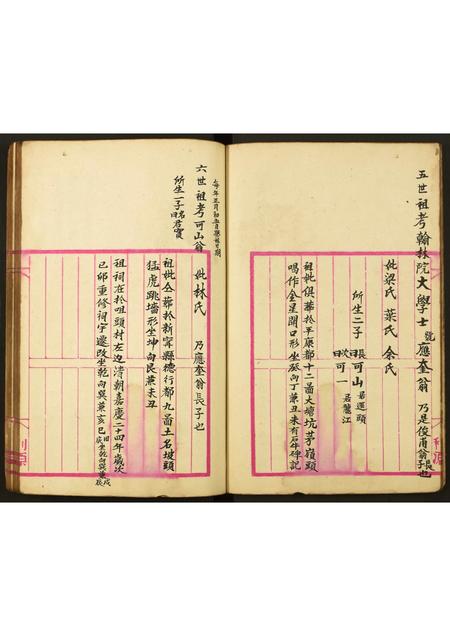 五世祖考翰林院大學士號應奎翁 乃是俊甫翁長子也
妣梁氏 葉氏 余氏
所生二子長曰可山居運頭
次曰可一居鷺江
祖妣俱葬於平康都十二啚大塘坑茅嶺頭
喝作金星開口形坐癸向丁兼丑未有石碑記
每年正月初五日懸燈日期
六世祖考可山翁 妣林氏 乃應奎翁長子也
所生一子名曰君寶
祖妣仝葬於新寧縣德行都九啚土名坡頭
猛虎跳墻形坐坤向艮兼未丑
祖祠在於咀頭村左边清朝嘉慶二十四年歲次
已卯重修祠宇遷改坐乾向巽兼亥巳